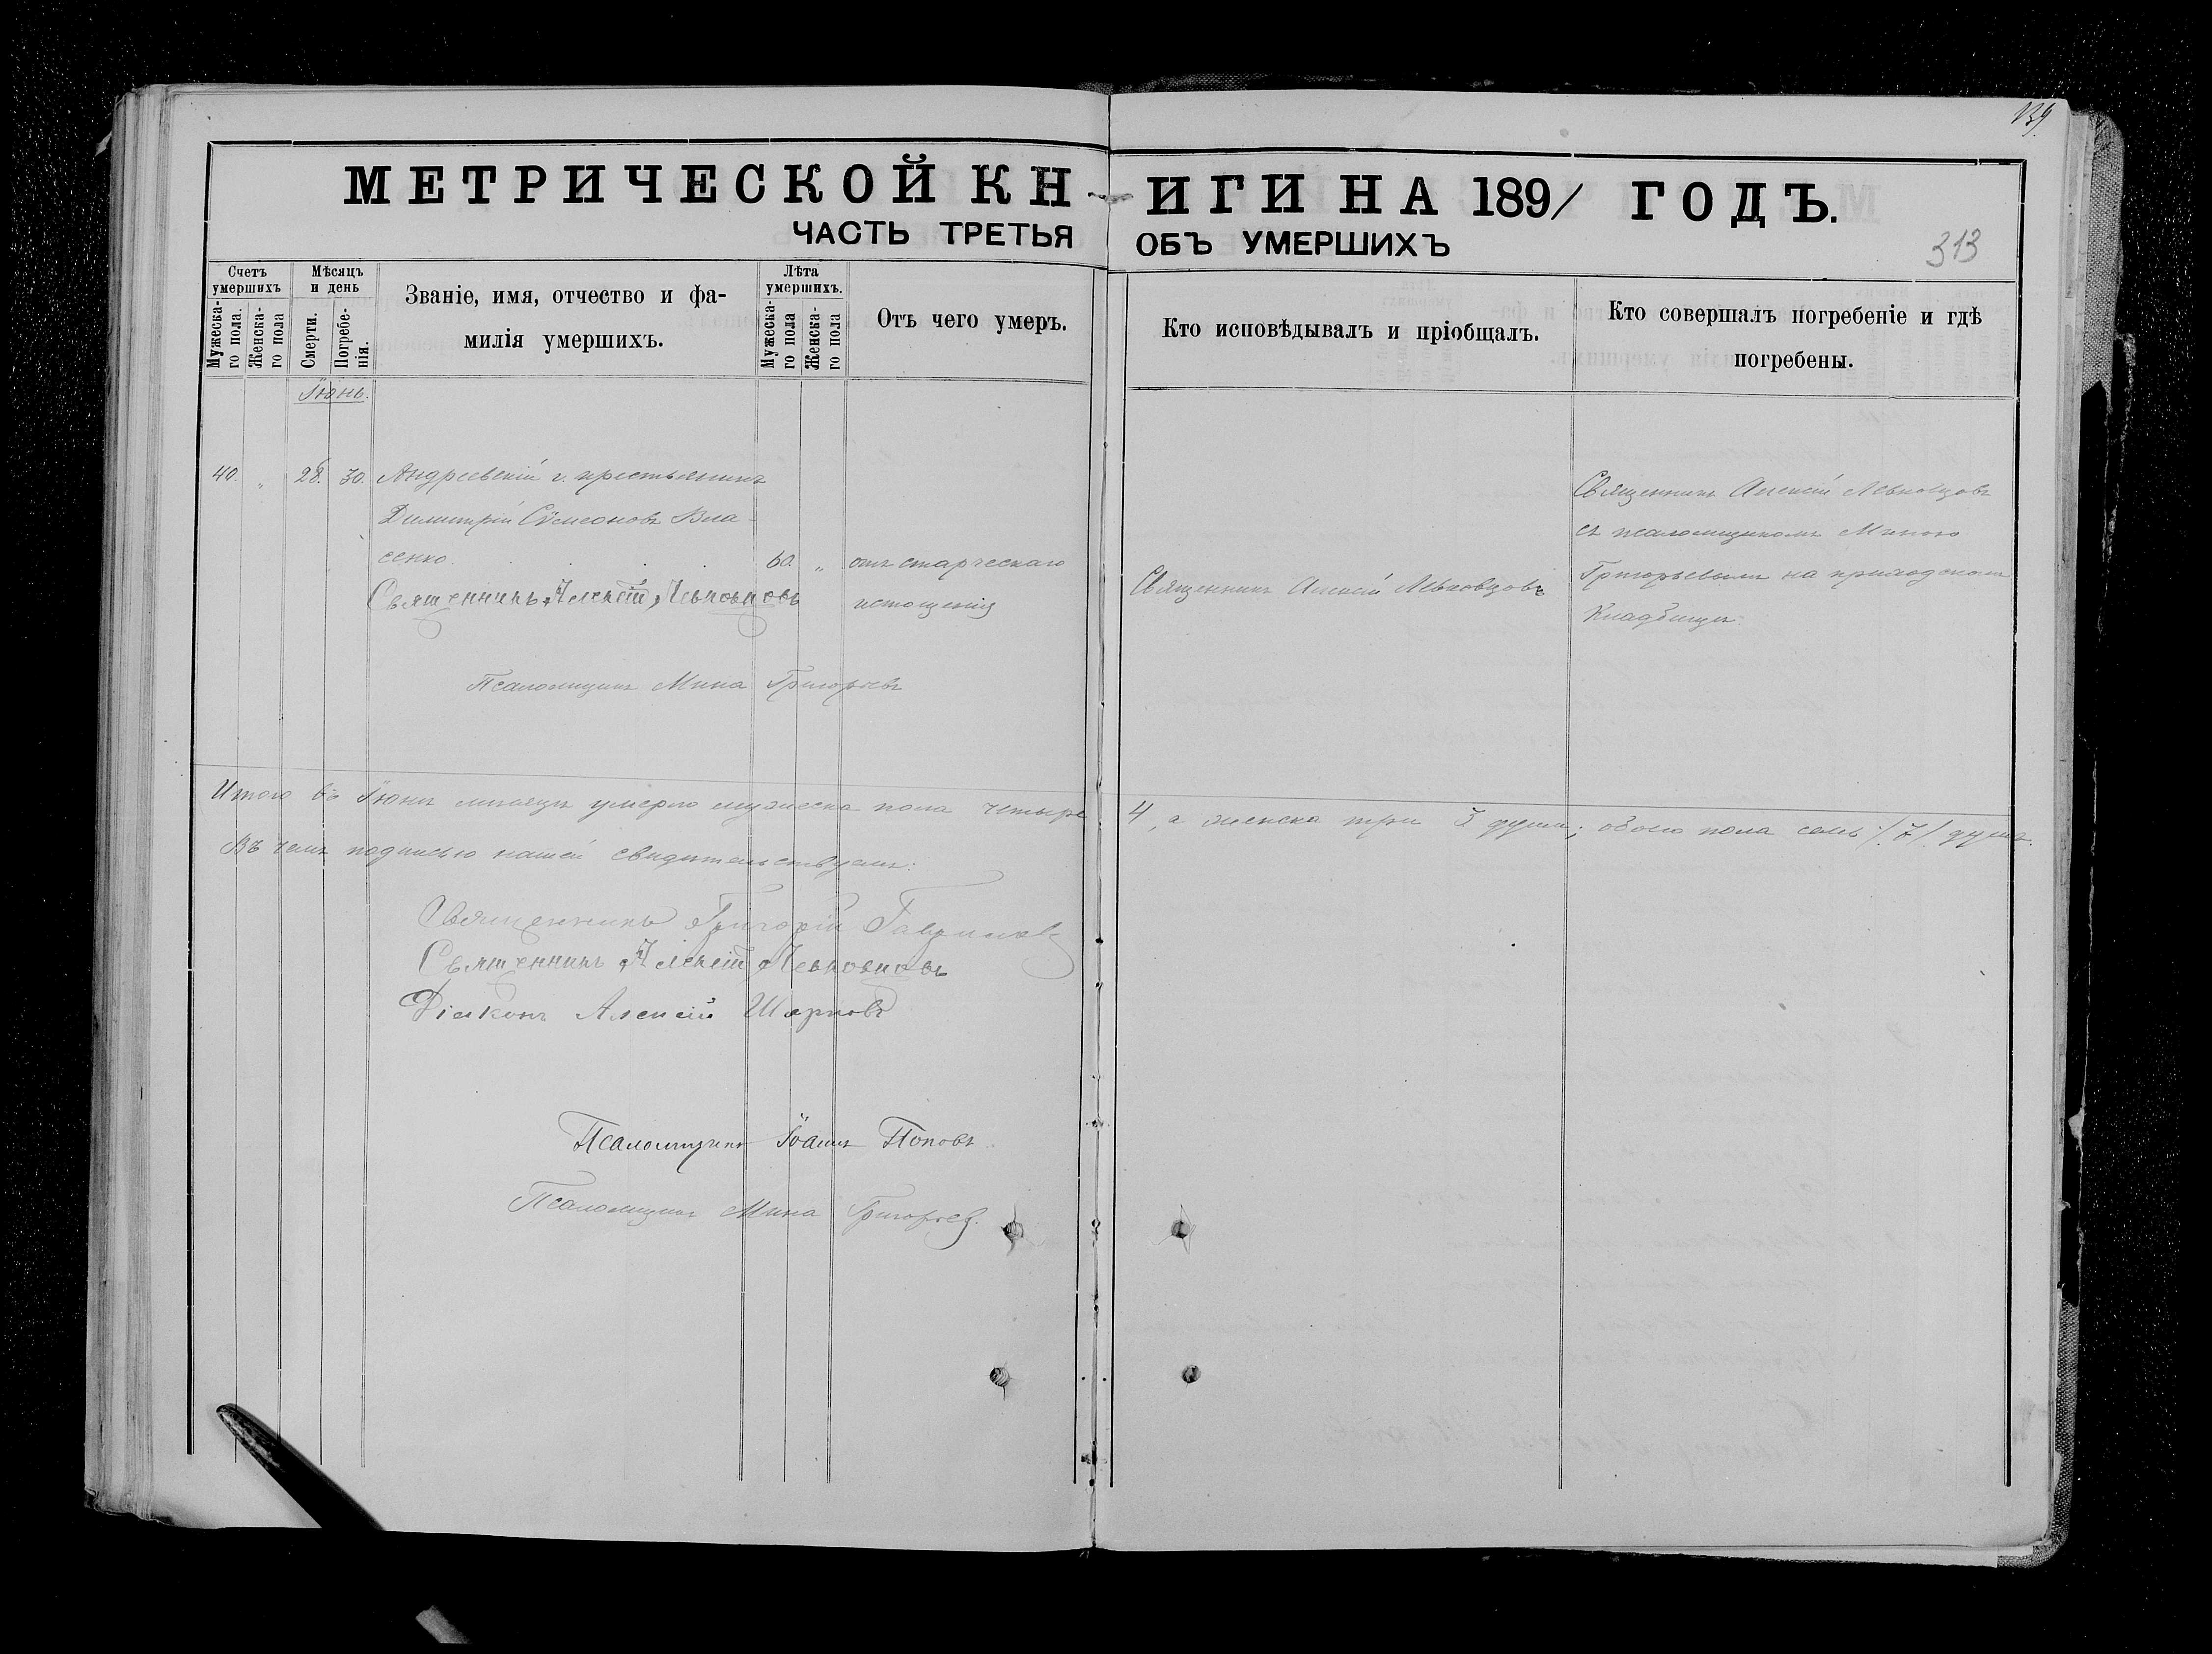 139.
МЕТРИЧЕСКОЙ КН
ИГИ НА 1891 ГОДЪ.
ЧАСТЬ ТРЕТЬЯ
ОБЪ УМЕРШИХЪ
313
Счетъ умершихъ
Мужеска-го пола.
Женска-го пола
Мѣсяцъ и день
Смерти.
Погребе-нія.
Званіе, имя, отчество и фа-
милія умершихъ.
Лѣта умершихъ.
Мужеска-го пола
Женска-го пола
Отъ чего умеръ.
Кто исповѣдывалъ и пріобщалъ.
Кто совершалъ погребеніе и гдѣ
погребены.
Іюнь.
40. „ 28. 30. Андреевскій с. крестьянинъ
Димитрій Сѵмеоновъ Вла-
сенко. 60. „ отъ старческаго
истощенія
Священникъ Алексій Левковцовъ
Священникъ Алексій Левковцовъ
съ псаломщикомъ Миною
Григорьевымъ на приходскомъ
Кладбищѣ.
Священникъ Алексій Левковцовъ
Псаломщикъ Мина Григорьевъ
Итого въ Іюнѣ мѣсяцѣ умерло мужеска пола четыре 4, а женска три 3 души; обоего пола семь /7/ душъ.
Въ чемъ подписью нашей свидѣтельствуемъ:
Священникъ Григорій
Священникъ Алексій Левковцовъ
Діаконъ Алексій
Псаломщикъ Іоаннъ Поповъ
Псаломщикъ Мина Григорьевъ.